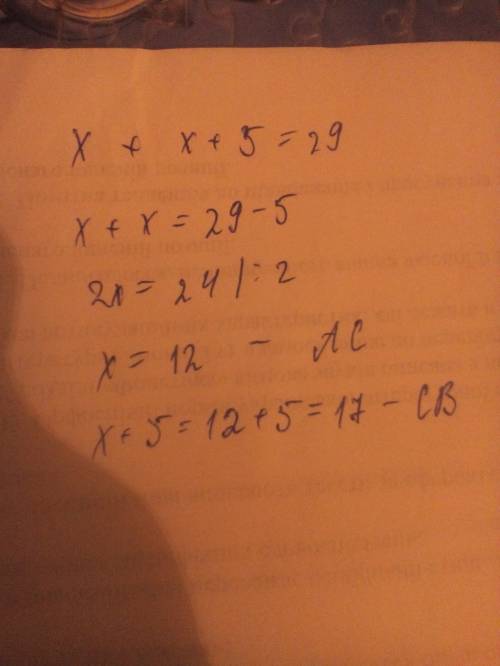 x + x + 5 = 29
x + x = 29 - 5
2x = 24 | : 2
x = 12 - AC
x + 5 = 12 + 5 = 17 - CB